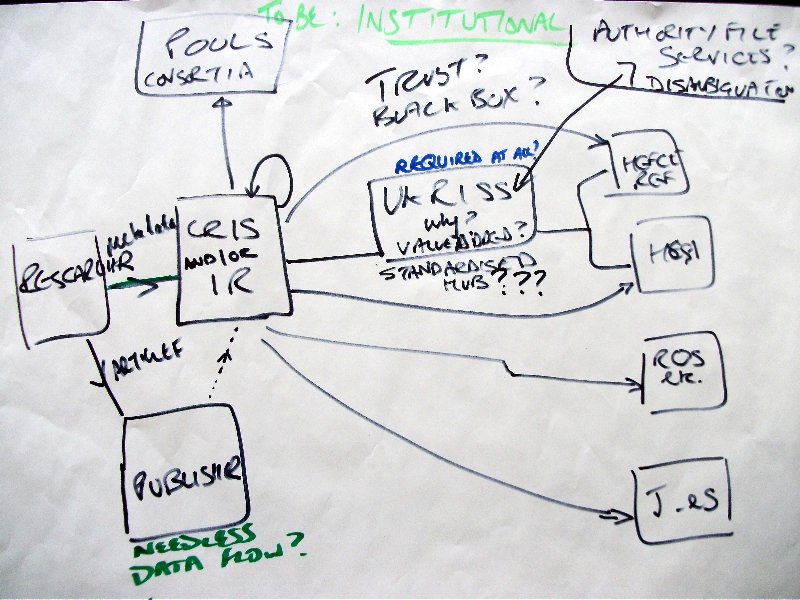 TO BE: INSTITUTIONAL
POOLS
CONSORTIA
AUTHORITY FILE
SERVICES?
DISAMBIGUATION
TRUST?
BLACK BOX?
REQUIRED AT ALL?
UKRISS
Why?
VALUE ADDED?
STANDARDISED
HUB???
HEFCE
REF
metadata
CRIS
AND/OR
IR
RESEARCHER
ARTICLE
ROS
etc.
PUBLISHER
NEEDLESS
DATA FLOW?